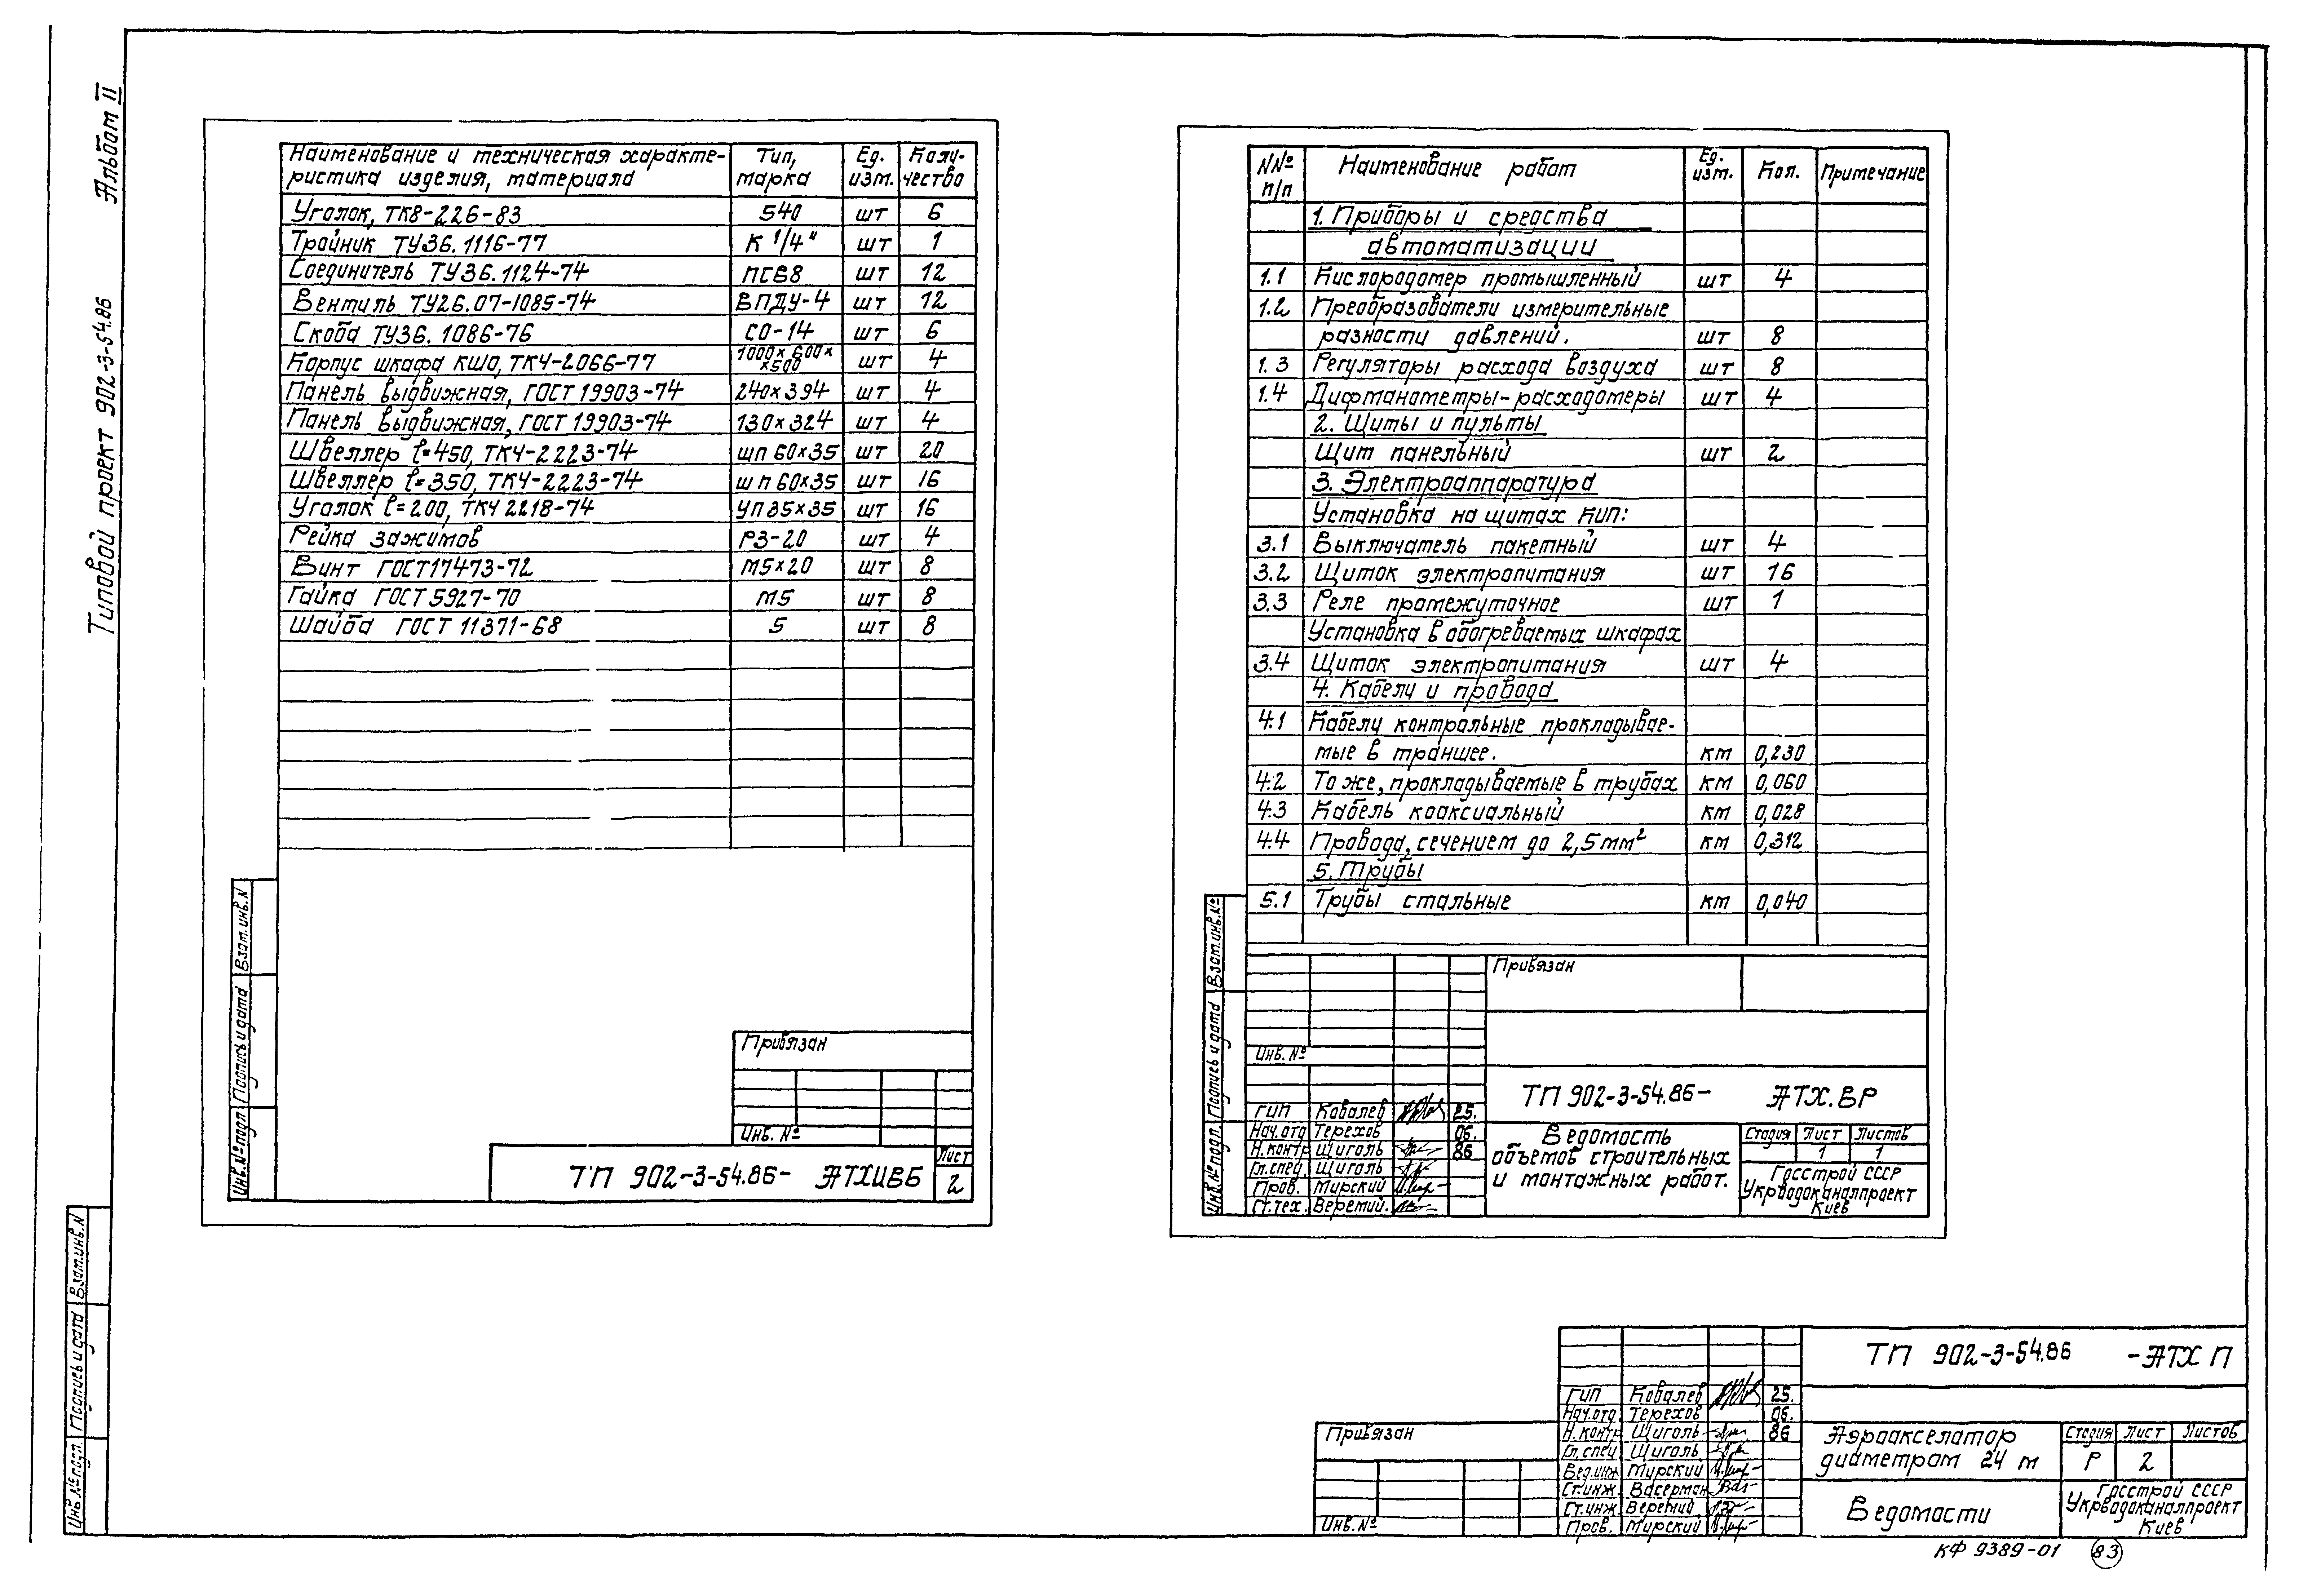 Альбом II
Типовой проект 902-3-54.86
Наименование и техническая характе- Тип, Ед. Коли-
ристика изделия, материала марка изм. чество
Уголок, ТК8-226-83 540 шт 6
Тройник ТУ36.1116-77 К 1/4" шт 1
Соединитель ТУ36.1124-74 ПСВ8 шт 12
Вентиль ТУ26.07-1085-74 ВПДУ-4 шт 12
Скоба ТУ36.1086-76 СО-14 шт 6
Корпус шкафа КШО, ТК4-2066-77 1000×600××500 шт 4
Панель выдвижная, ГОСТ 19903-74 240×394 шт 4
Панель выдвижная, ГОСТ 19903-74 130×324 шт 4
Швеллер l=450, ТК4-2223-74 шп 60×35 шт 20
Швеллер l=350, ТК4-2223-74 шп 60×35 шт 16
Уголок l=200, ТК4 2218-74 УП35×35 шт 16
Рейка зажимов РЗ-20 шт 4
Винт ГОСТ17473-72 М5×20 шт 8
Гайка ГОСТ 5927-70 М5 шт 8
Шайба ГОСТ 11371-68 5 шт 8
Взам.инв.N
Подпись и дата
Инв.№подл
Привязан
Инв. №
ТП 902-3-54.86- АТХИВБ
Лист
2
N№ п/п Наименование работ Ед. изм. Кол. Примечание
1. Приборы и средства
автоматизации
1.1 Кислородомер промышленный шт 4
1.2 Преобразователи измерительные
разности давлений. шт 8
1.3 Регуляторы расхода воздуха шт 8
1.4 Дифманометры-расходомеры шт 4
2. Щиты и пульты
Щит панельный шт 2
3. Электроаппаратура
Установка на щитах КИП:
3.1 Выключатель пакетный шт 4
3.2 Щиток электропитания шт 16
3.3 Реле промежуточное шт 1
Установка в обогреваемых шкафах
3.4 Щиток электропитания шт 4
4. Кабели и провода
4.1 Кабели контрольные прокладывае-
мые в траншее. км 0,230
4.2 То же, прокладываемые в трубах км 0,060
4.3 Кабель коаксиальный км 0,028
4.4 Провода, сечением до 2,5мм² км 0,312
5. Трубы
5.1 Трубы стальные км 0,040
Взам.инв.№
Подпись и дата
Инв.№ подл.
Привязан
Инв. №
ТП 902-3-54.86- АТХ.ВР
ГИП Ковалев 25.
Нач.отд Терехов 06.
Н.контр Щиголь 86
Гл.спец. Щиголь
Пров. Мирский
Ст.тех. Веремий.
Ведомость
объемов строительных
и монтажных работ.
Стадия Лист Листов
1 1
Госстрой СССР
Укрводоканалпроект
Киев
Взам.инв.N
Подпись и дата
Инв.№подл.
Привязан
Инв.№
ТП 902-3-54.86 -АТХ П
ГИП Ковалев 25.
Нач.отд. Терехов 06.
Н.контр Щиголь 86
Гл.спец Щиголь
Вед.инж Мирский
Ст.инж. Васерман
Ст.инж. Веремий
Пров. Мирский
Аэроакселатор
диаметром 24 м
Стадия Лист Листов
Р 2
Ведомости
Госстрой СССР
Укрводоканалпроект
Киев
КФ 9389-01 83